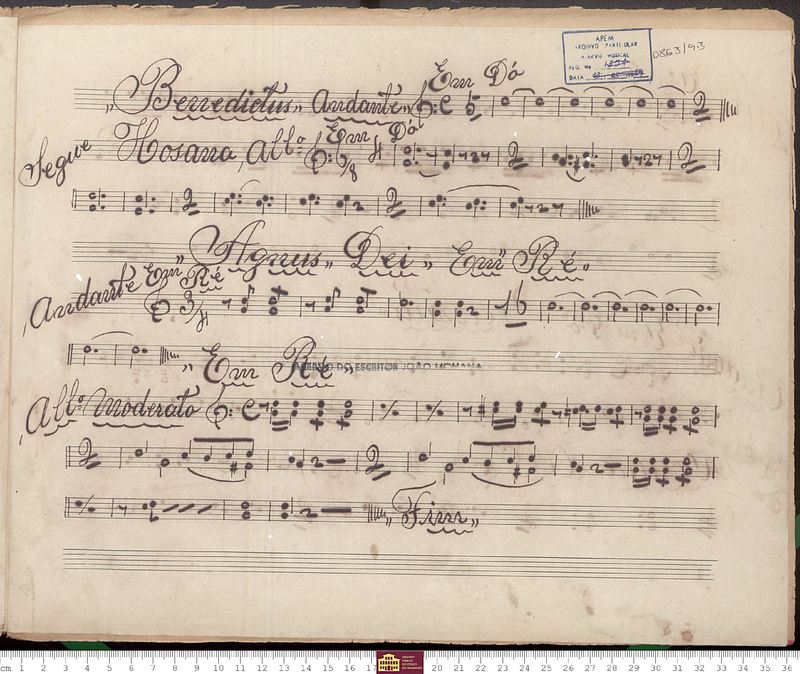 APEM
ARQUIVO PARTICULAR
ACERVO MUSICAL
REG. Nº
DATA
0863/93
Em Dó
„Benedictus„ Andante„ C 5 2
Segue Hosana, All.º Em Dó 6/8 4 2 2 2
2 2 2
„Agnus„ Dei„ Em Ré.
Andante Em Ré 3/4 16
„Em Ré„
ACERVO DO ESCRITOR JOÃO MOHANA
All.º moderato C
2 2
„Fim„
cm 1 2 3 4 5 6 7 8 9 10 11 12 13 14 15 16 17 20 21 22 23 24 25 26 27 28 29 30 31 32 33 34 35 36